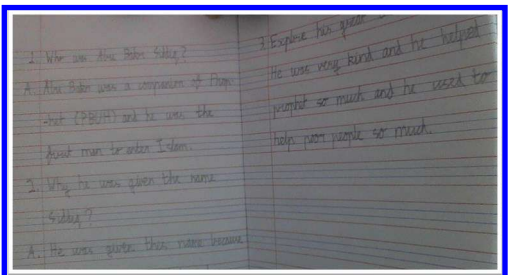 1. Who was Abu Bakr Siddiq?
A. Abu Bakr was a companion of Proph
-het (PBUH) and he was the
first man to enter Islam.
2. Why he was given the name
Siddiq?
A. He was given this name because
3. Explore his great
He was very kind and he helped
prophet so much and he used to
help poor people so much.